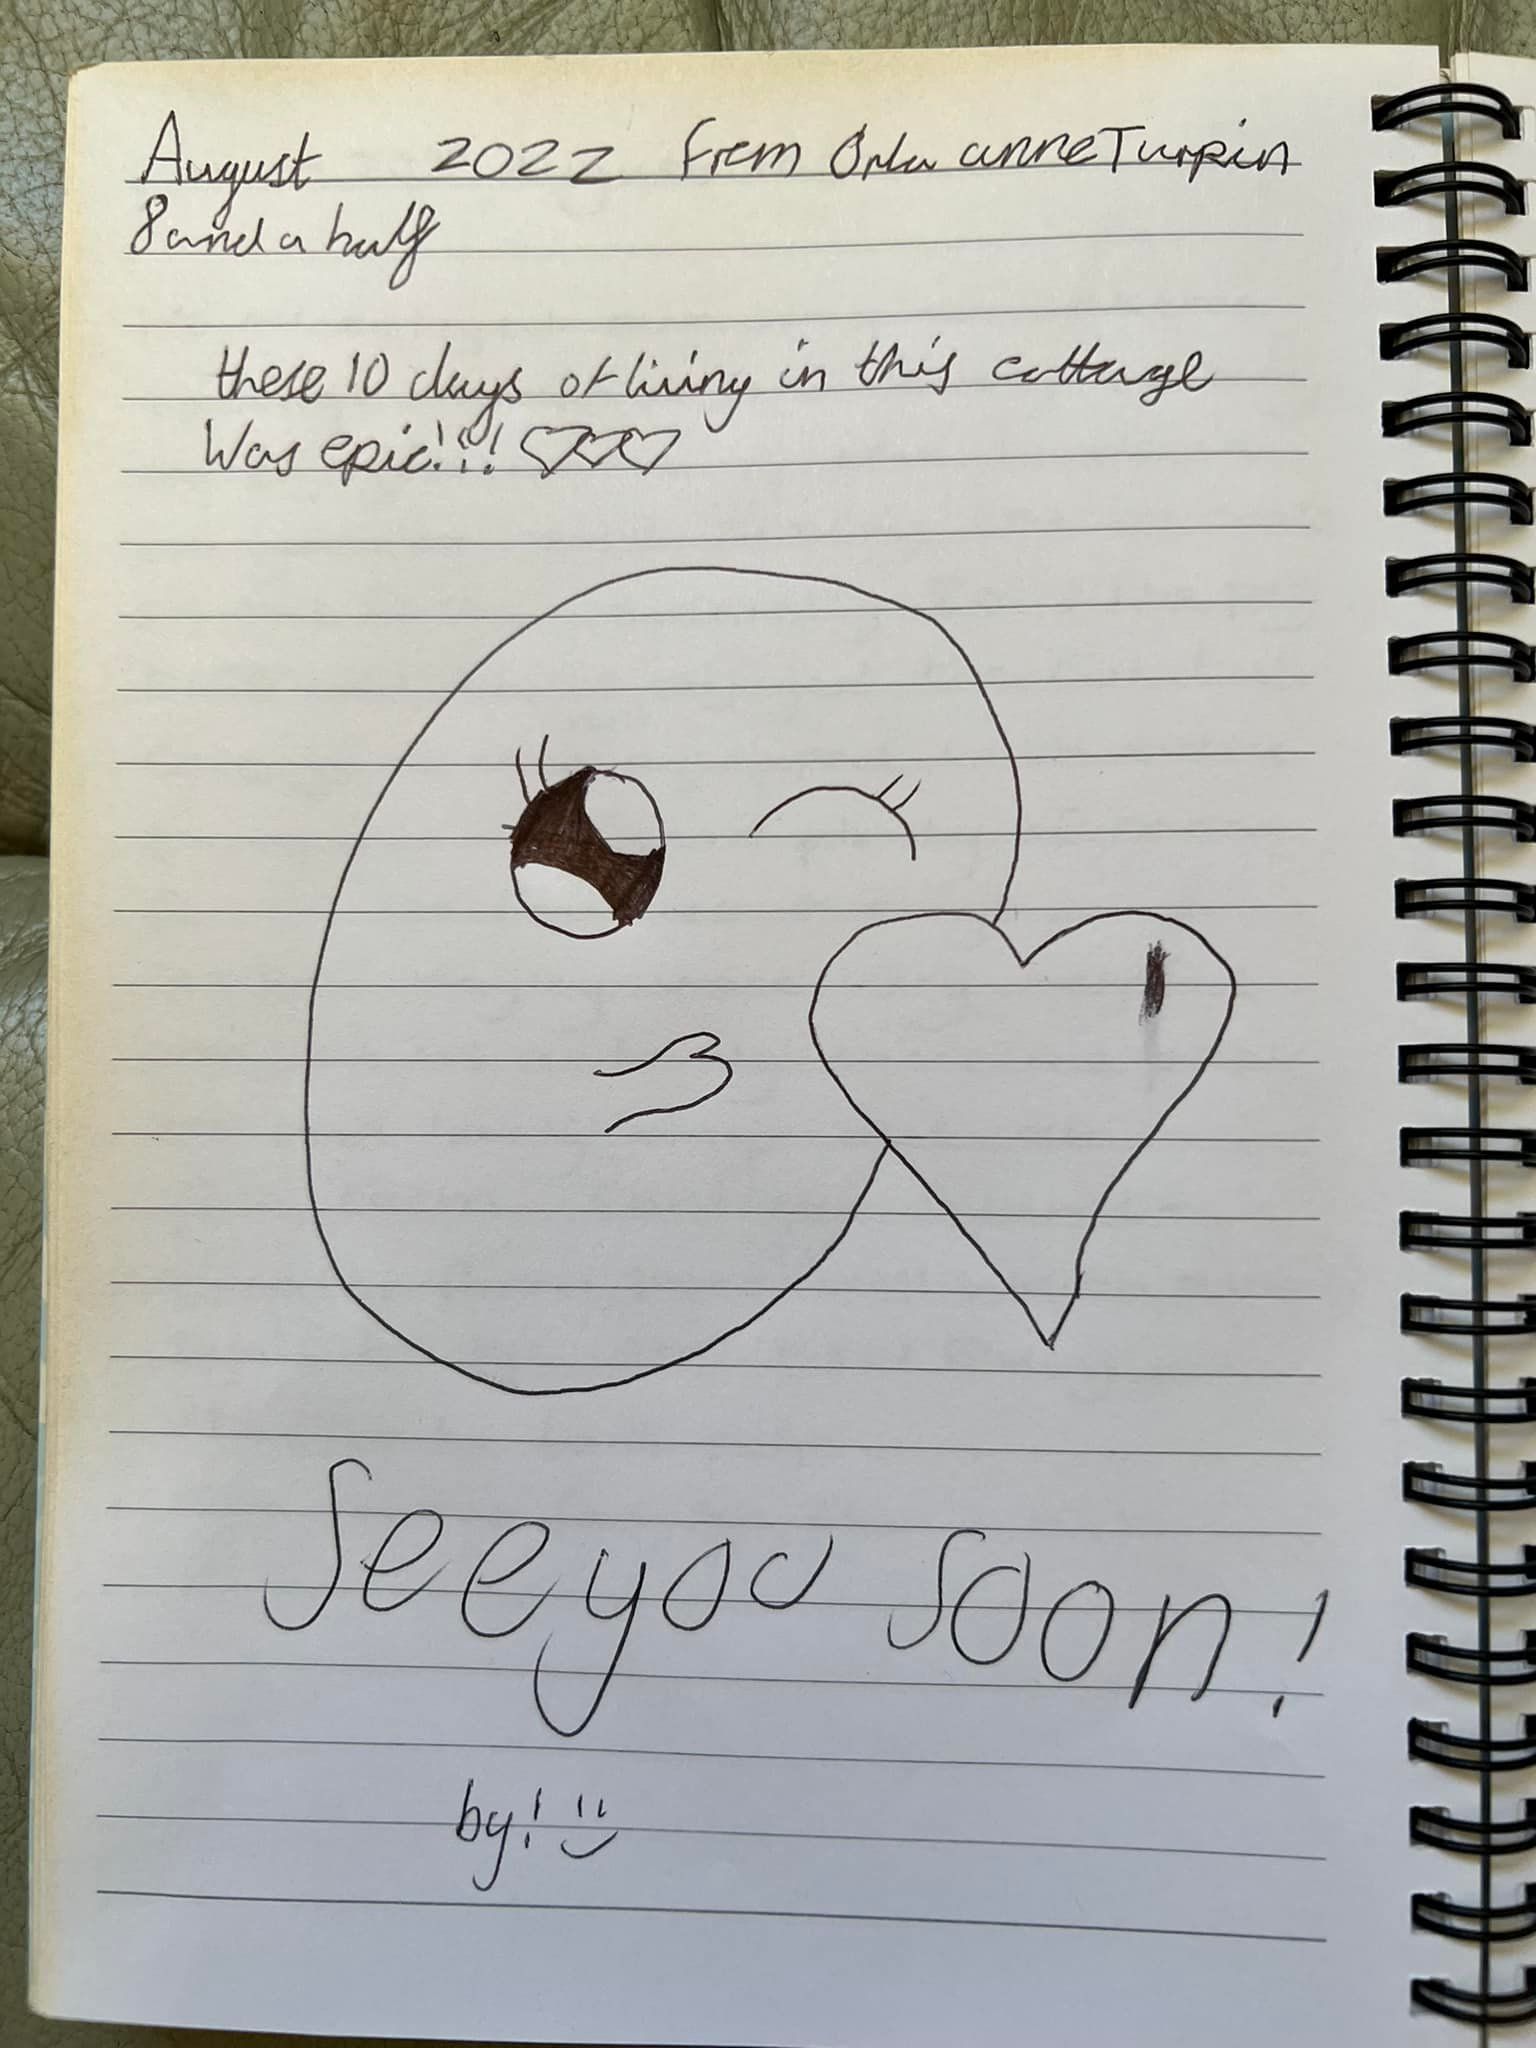 August 2022 From Orla anne Turpin
8 and a half
these 10 days of living in this cottage
Was epic!!!
See you soon!
by!